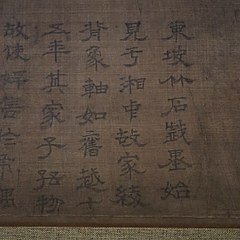 東坡竹石戲墨始
見于湘中故家綾
背象軸如舊越十
五年其家子孫物
故使